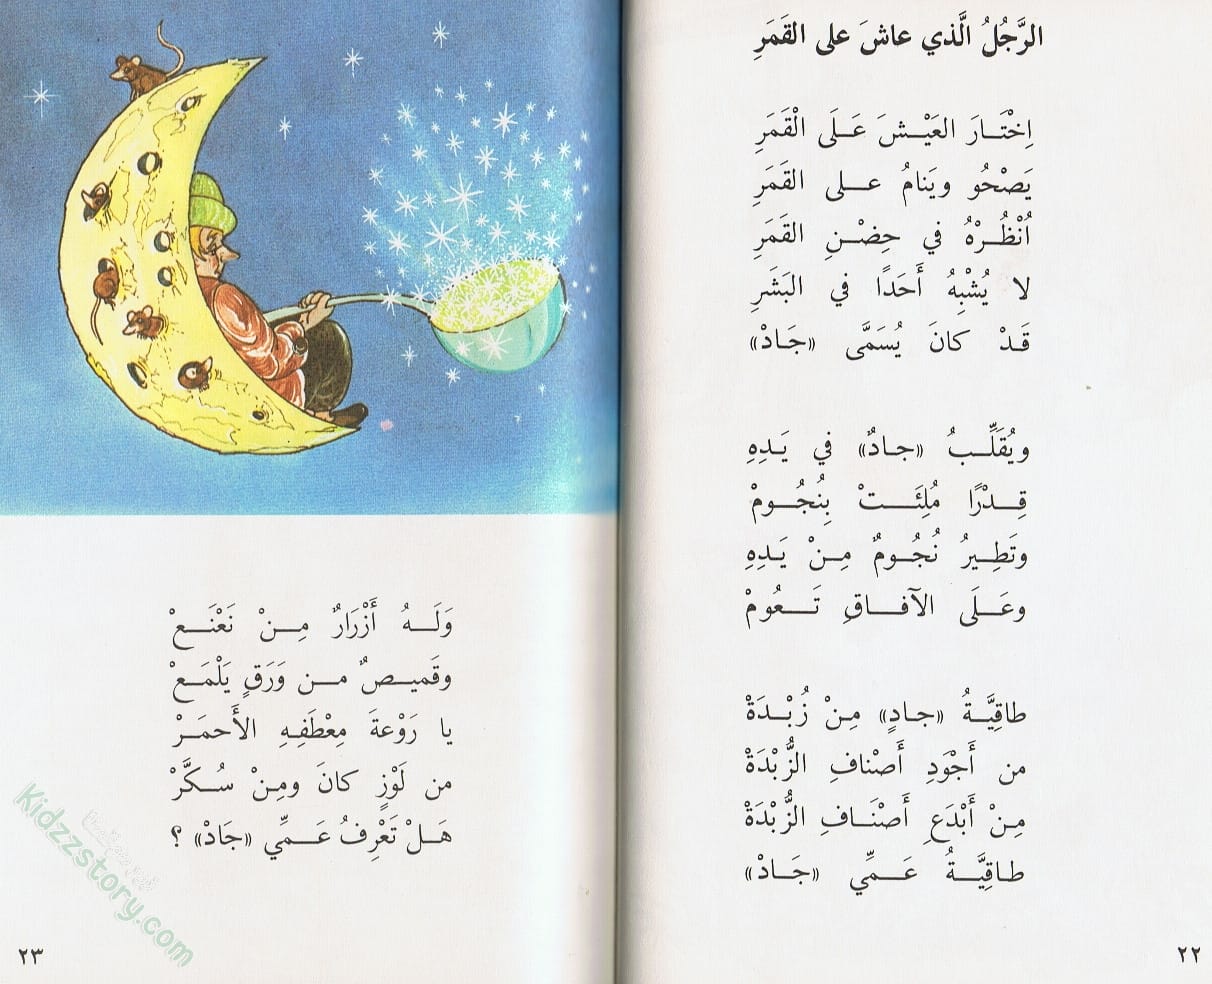 الرَّجُلُ الَّذي عاشَ على القَمَرِ
اِخْتَــارَ العَيْــشَ عَــلَى الْقَمَرِ
يَصْحُو ويَنامُ عــلى القَمَرِ
اُنْظُــرْهُ في حِضْــنِ القَمَرِ
لا يُشْبِهُ أَحَدًا في البَشَرِ
قَــدْ كانَ يُسَمَّى «جَـادْ»
ويُقَلِّــبُ «جـادٌ» في يَــدِهِ
قِــدْرًا مُلِئَــتْ بِنُجُــومْ
وتَطِيـرُ نُجُـومٌ مِـنْ يَـدِهِ
وعَــلَى الآفــاقِ تَــعُومْ
طاقِيَّــةُ «جـادٍ» مِـنْ زُبْــدَةْ
من أَجْوَدِ أَصْنافِ الزُّبْدَةْ
مِـنْ أَبْدَعِ أَصْنَـافِ الزُّبْدَةْ
طاقِيَّــةُ عَــمِّي «جَـادْ»
٢٢
وَلَــهُ أَزْرَارٌ مِــنْ نَعْنَــعْ
وقَميــصٌ مــن وَرَقٍ يَلْمَـعْ
يا رَوْعةَ مِعْطَفِـهِ الأَحمَـرْ
من لَوْزٍ كانَ ومِـنْ سُـكَّرْ
هَــلْ تَعْرِفُ عَــمِّي «جَادْ» ؟
٢٣
Kidzzstory.com